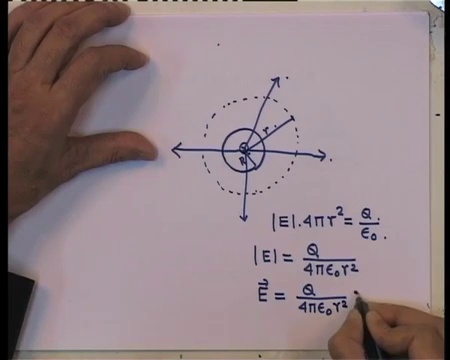 r
Q
R
|E|.4πr² = Q/ε₀.
|E| = Q/4πε₀r²
E⃗ = Q/4πε₀r²